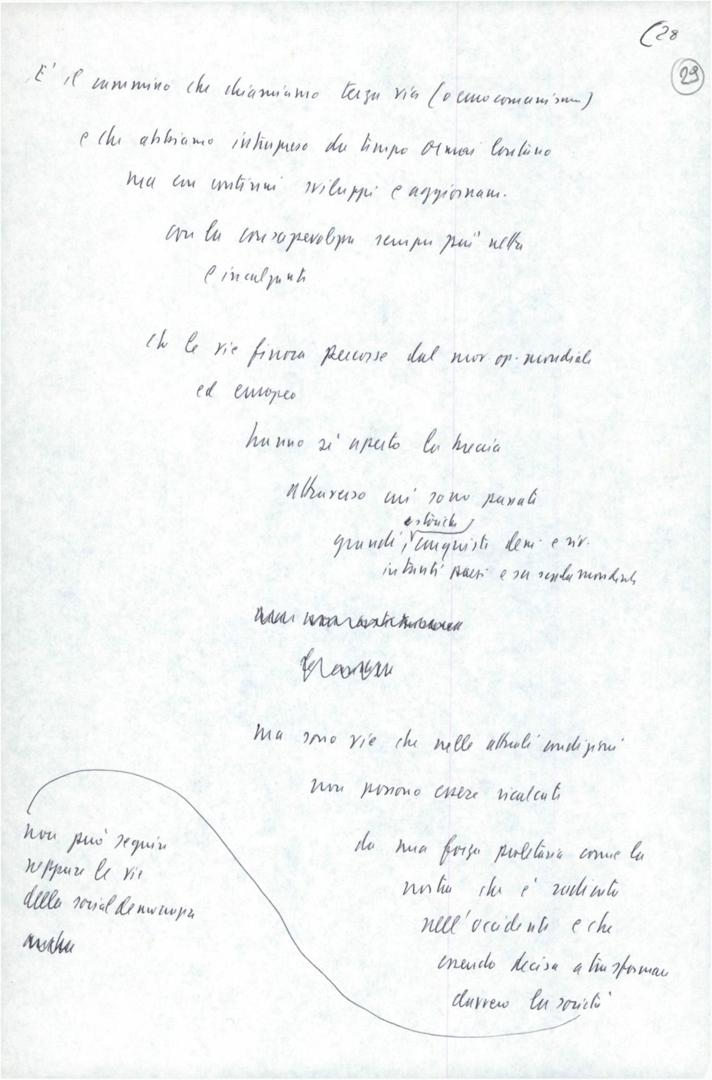 28
29
E' il cammino che chiamiamo terza via (o eurocomunismo)
e che abbiamo intrapreso da tempo ormai lontano
ma con continui sviluppi e aggiornam.
con la consapevolezza sempre più netta
e incalzante
che le vie finora percorse dal mov op. mondiale
ed europeo
hanno sì aperto la breccia
attraverso cui sono passate
storiche
grandi conquiste dem. e riv.
in tanti paesi e su scala mondiale
ma sono vie che nelle attuali condizioni
non possono essere ricalcate
da una forza proletaria come la
nostra che è radicata
nell'occidente e che
essendo decisa a trasformare
davvero la società
non può seguire
neppure le vie
della socialdemocrazia